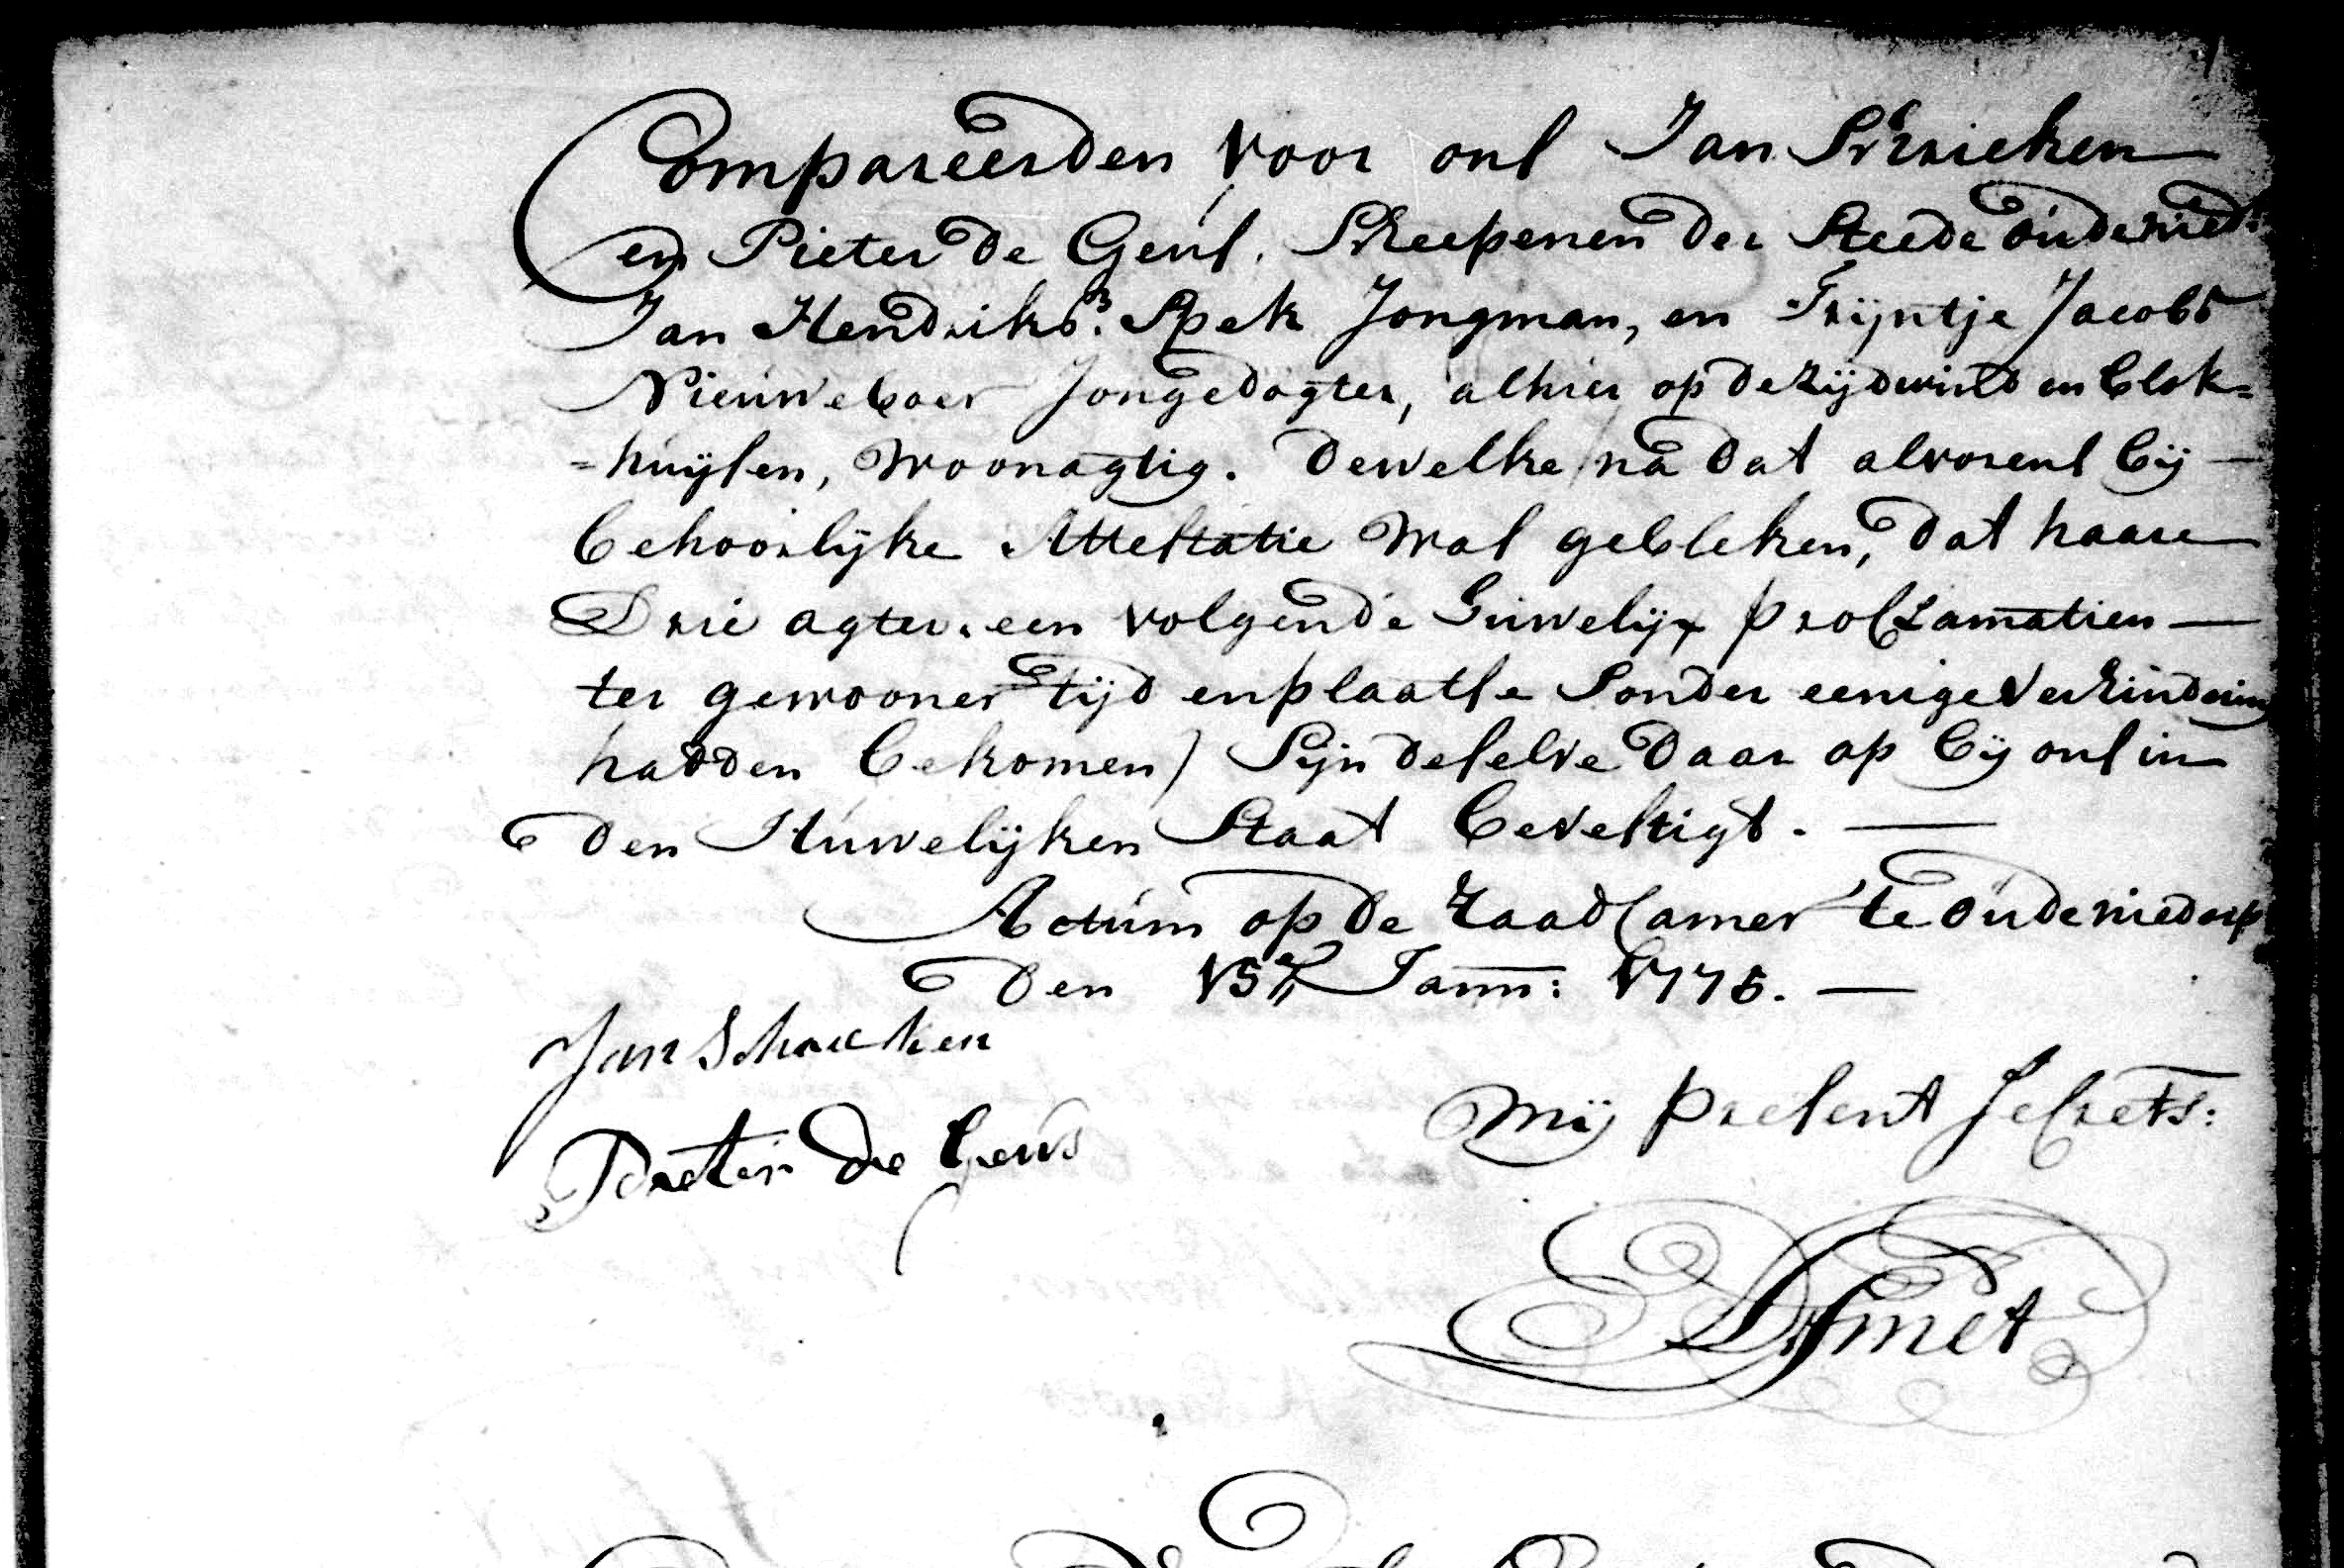 Compareerden voor ons Jan Schrieken
en Pieter de Geus, Scheepenen der Steede oude nied:
Jan Hendriksz: Spek Jongman, en Trijntje Jacobs
Nieuweboer Jongedogter, alhier op de Zijdwind en Blok=
=huijsen, woonagtig. dewelke /na dat alvorens bij
behoorlijke Attestatie was gebleken, dat haare
Drie agter een volgende Huwelijx proclamatien
ter gewooner tijd en plaatse sonder eenige verhindering
hadden bekomen) Sijn deselve daar op bij ons in
den Huwelijken Staat bevestigt.
Actum op de Raadcamer te oude niedorp
den 15e Jann: 1775.
Jan Schrieken
Pieter de Geus
mij present Secrets:
Smet